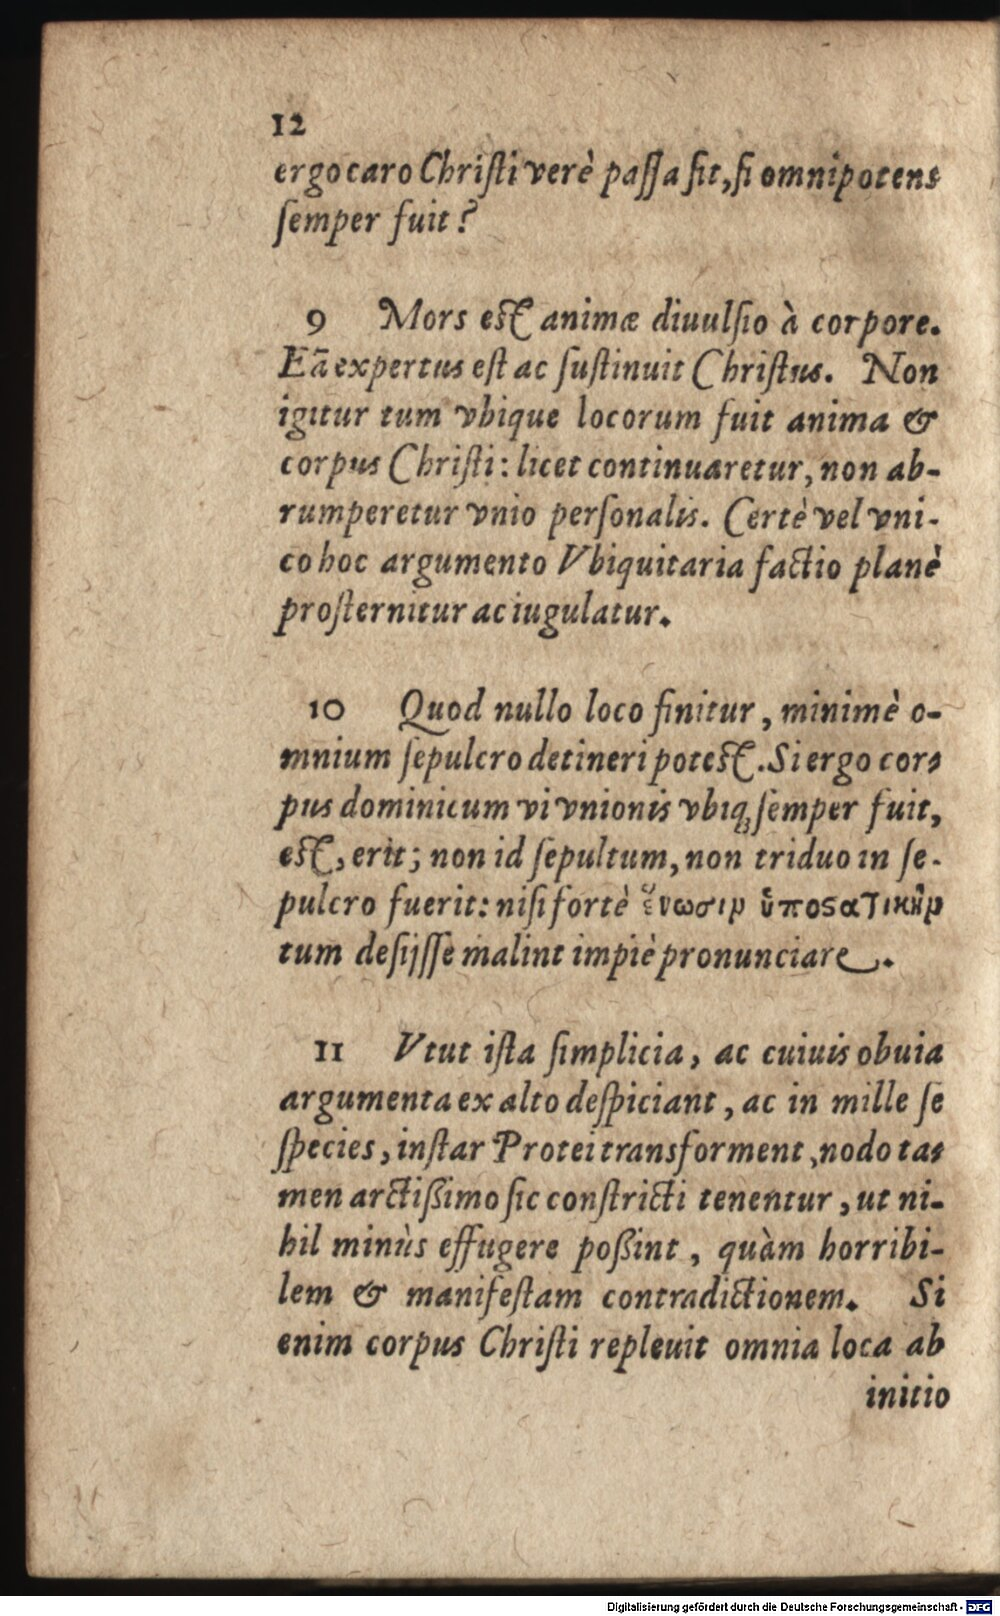 12
ergo caro Chriſti verè paſſa ſit, ſi omnipotens
ſemper fuit?
9 Mors eſt animæ diuulſio à corpore.
Eā expertus eſt ac ſuſtinuit Chriſtus. Non
igitur tum vbique locorum fuit anima &
corpus Chriſti: licet continuaretur, non ab-
rumperetur vnio perſonalis. Certè vel vni-
co hoc argumento Vbiquitaria factio planè
proſternitur ac iugulatur.
10 Quod nullo loco finitur, minimè o-
mnium ſepulcro detineri poteſt. Si ergo cor-
pus dominicum vi vnionis vbiq; ſemper fuit,
eſt, erit; non id ſepultum, non triduo in ſe-
pulcro fuerit: niſi fortè ἕνωσιν ὑποϛατικὴν
tum deſijſſe malint impiè pronunciare.
11 Vtut iſta ſimplicia, ac cuiuis obuia
argumenta ex alto deſpiciant, ac in mille ſe
ſpecies, inſtar Protei transforment, nodo ta-
men arctißimo ſic conſtricti tenentur, ut ni-
hil minùs effugere poßint, quàm horribi-
lem & manifeſtam contradictionem. Si
enim corpus Chriſti repleuit omnia loca ab
initio
Digitalisierung gefördert durch die Deutsche Forschungsgemeinschaft - DFG